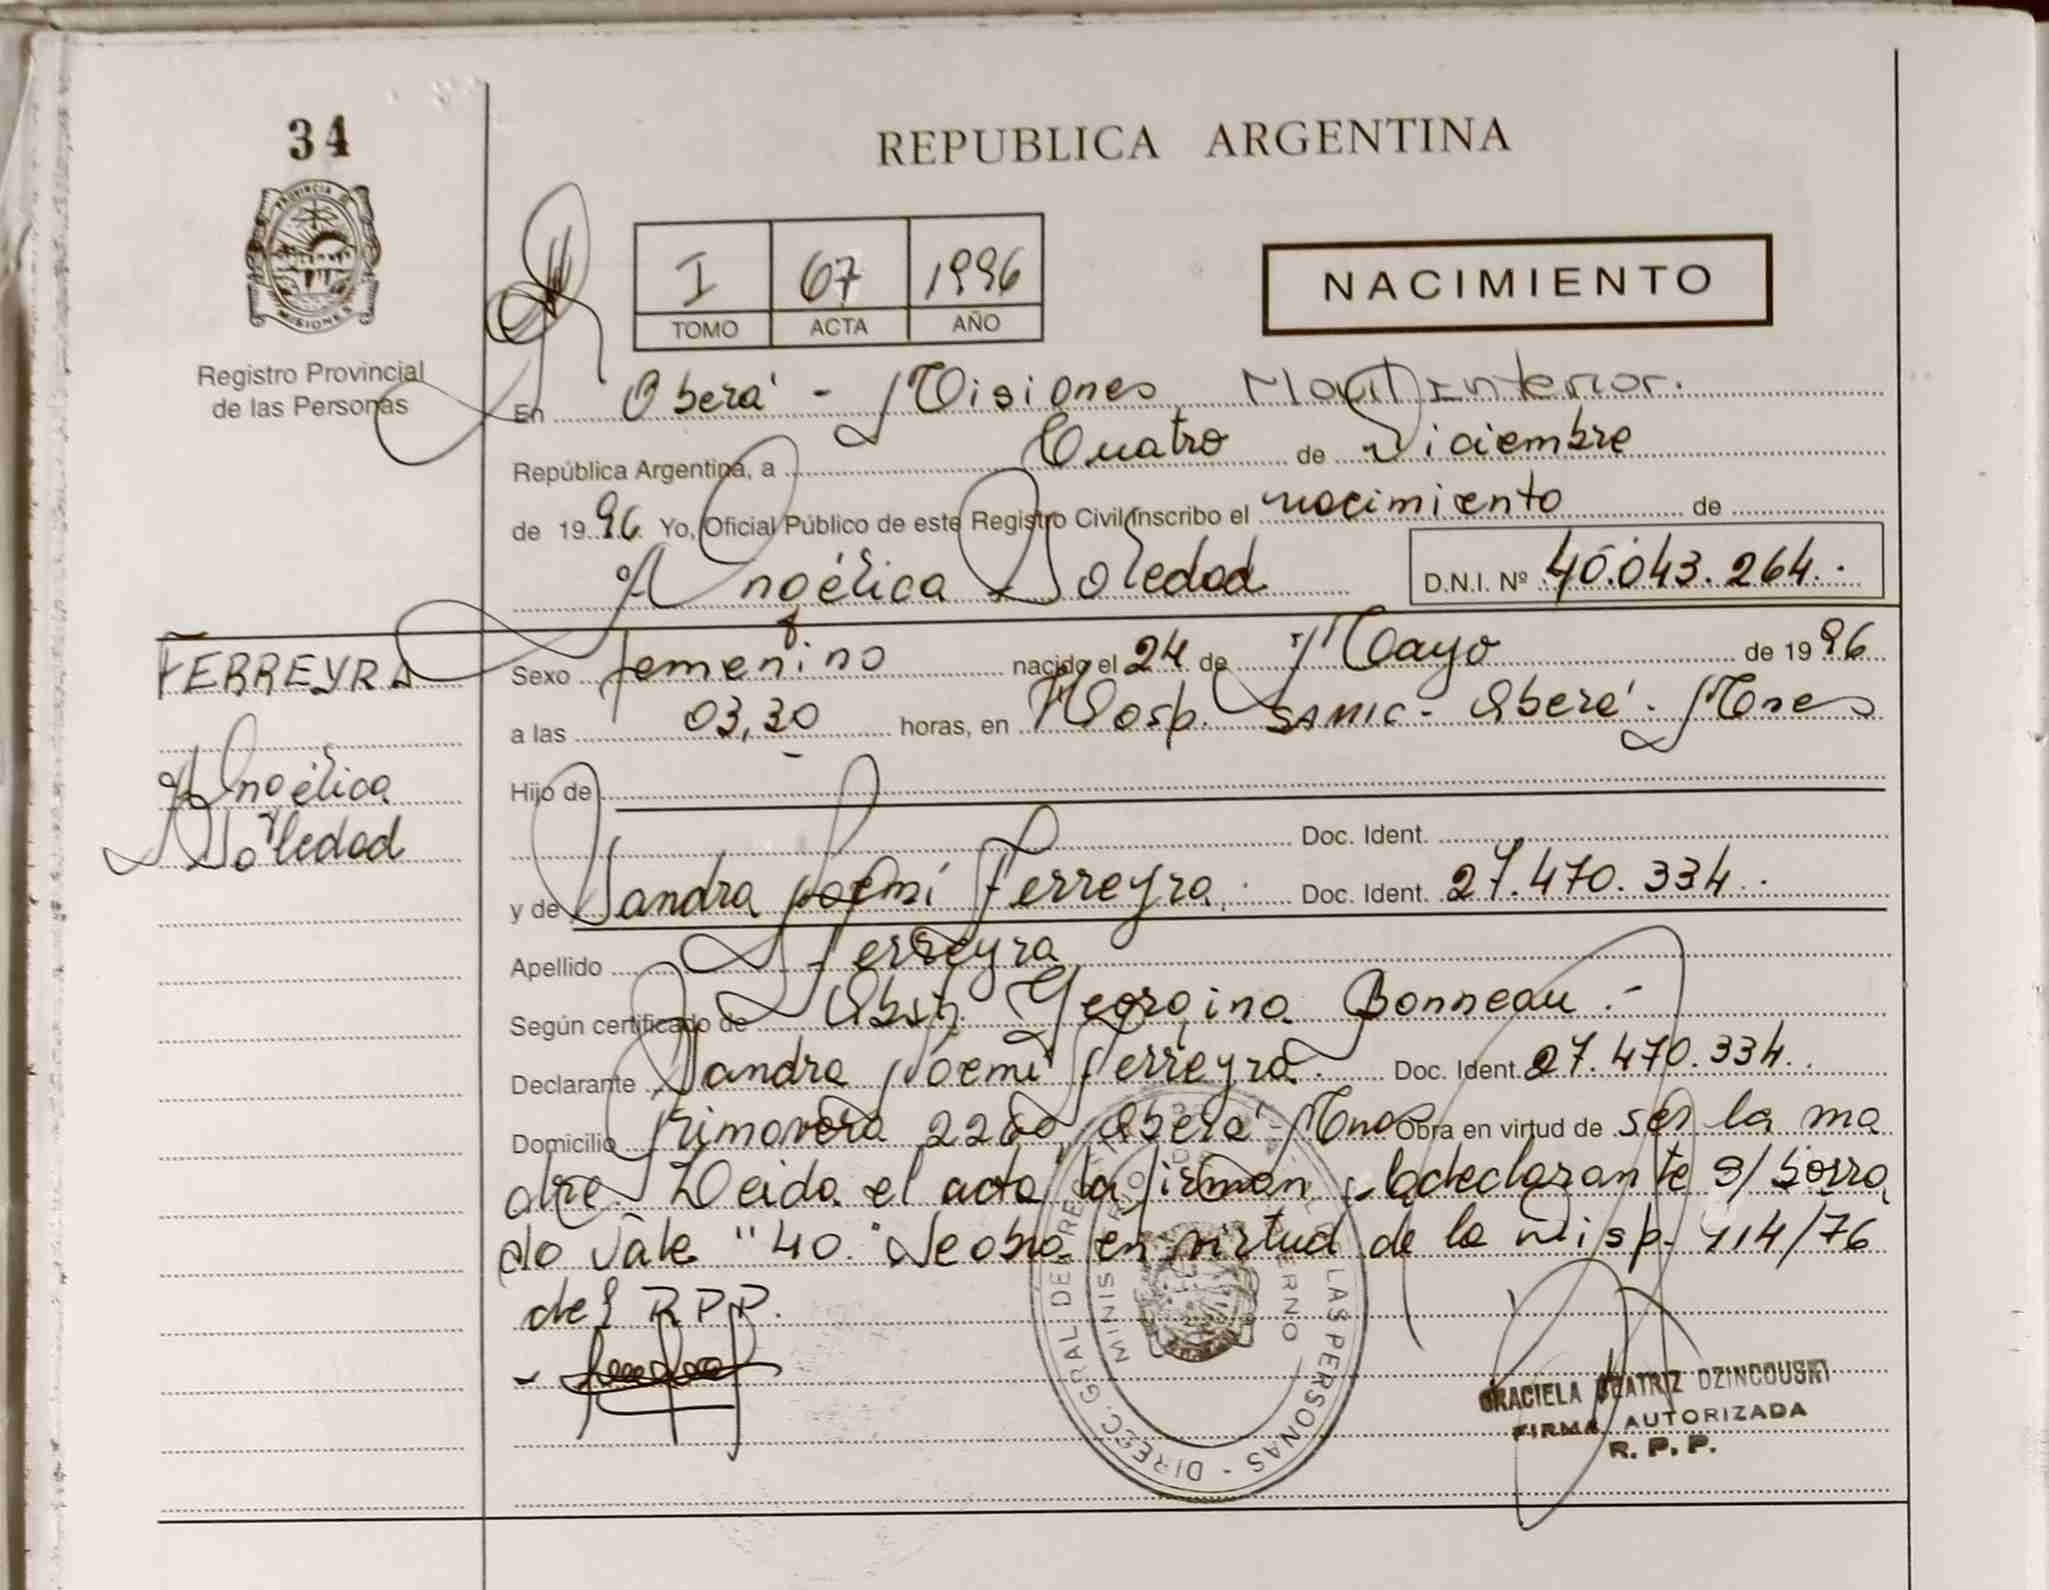 34
REPUBLICA ARGENTINA
PROVINCIA D
MISIONES
I 67 1996
TOMO ACTA AÑO
NACIMIENTO
Registro Provincial
de las Personas
En Oberá - Misiones Movil Interior.
República Argentina, a Cuatro de Diciembre
de 1996 Yo, Oficial Público de este Registro Civil inscribo el nacimiento de
Angélica Soledad D.N.I. Nº 40.043.264.
FERREYRA
Angélica
Soledad
Sexo femenino nacido el 24 de Mayo de 1996
a las 03,30 horas, en Hosp. SAMIC - Oberá - Mnes
Hijo de
Doc. Ident.
y de Sandra Noemí Ferreyra. Doc. Ident. 27.470.334.
Apellido Ferreyra
Según certificado de Obst. Georgina Bonneau.-
Declarante Sandra Noemí Ferreyra. Doc. Ident. 27.470.334.
Domicilio Primavera Oberá - Mnes Obra en virtud de ser la ma
dre. Leida el acta la firman la declarante s/ borra
do vale "40." Se obra en virtud de la Disp. 414/76
del R.P.P.
DIREC. GRAL DE REG LAS PERSONAS
MINIS ERNO
GRACIELA BEATRIZ DZINCOUSKI
FIRMA AUTORIZADA
R. P. P.